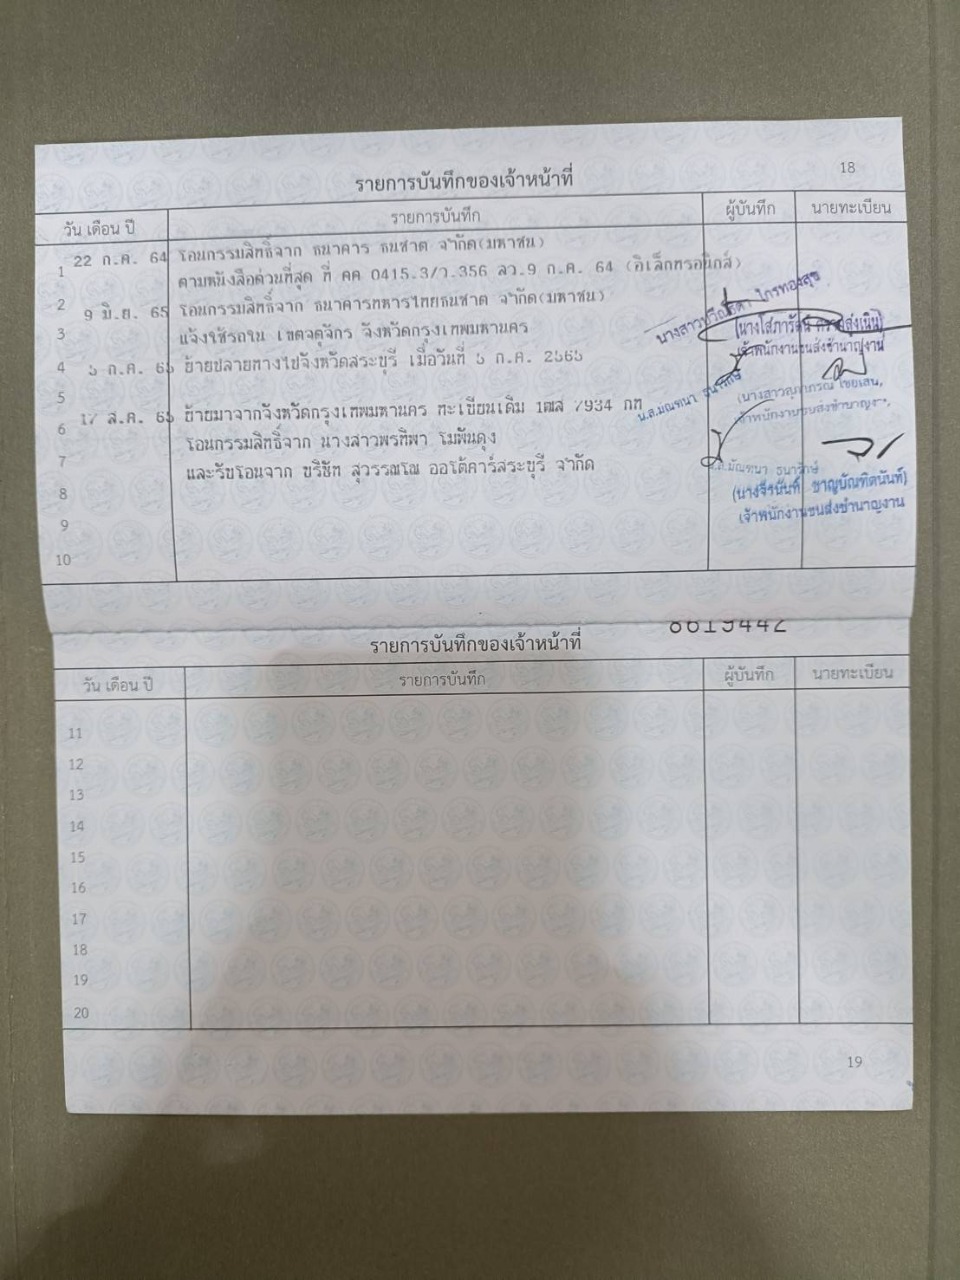 18
รายการบันทึกของเจ้าหน้าที่
วัน เดือน ปี รายการบันทึก ผู้บันทึก นายทะเบียน
1 22 ก.ค. 64 โอนกรรมสิทธิ์จาก ธนาคาร ธนชาต จำกัด(มหาชน)
ตามหนังสือด่วนที่สุด ที่ คค 0415.3/ว.356 ลว.9 ก.ค. 64 (อิเล็กทรอนิกส์)
2 9 มิ.ย. 65 โอนกรรมสิทธิ์จาก ธนาคารทหารไทยธนชาต จำกัด(มหาชน)
3 แจ้งใช้รถใน เขตจตุจักร จังหวัดกรุงเทพมหานคร
เจ้าพนักงานขนส่งชำนาญงาน
4 5 ก.ค. 65 ย้ายปลายทางไปจังหวัดสระบุรี เมื่อวันที่ 5 ก.ค. 2565
5
6 17 ส.ค. 65 ย้ายมาจากจังหวัดกรุงเทพมหานคร ทะเบียนเดิม 1ฒส 7934 กท
เจ้าพนักงานขนส่งชำนาญงาน
โอนกรรมสิทธิ์จาก นางสาวพรทิพา โมพันดุง
7 และรับโอนจาก บริษัท สุวรรณโณ ออโต้คาร์สระบุรี จำกัด
น.ส.มัณฑนา ธนารักษ์
(นางจีรนันท์ ชาญบัณฑิตนันท์)
เจ้าพนักงานขนส่งชำนาญงาน
8
9
10
8619442
รายการบันทึกของเจ้าหน้าที่
วัน เดือน ปี รายการบันทึก ผู้บันทึก นายทะเบียน
11
12
13
14
15
16
17
18
19
20
19